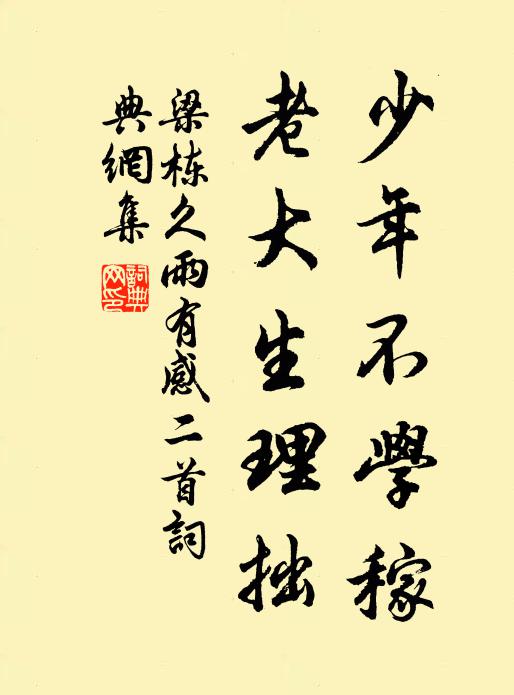 少年不學稼
老大生理拙
梁栋久雨有感二首詞
典網集
詞典
网印